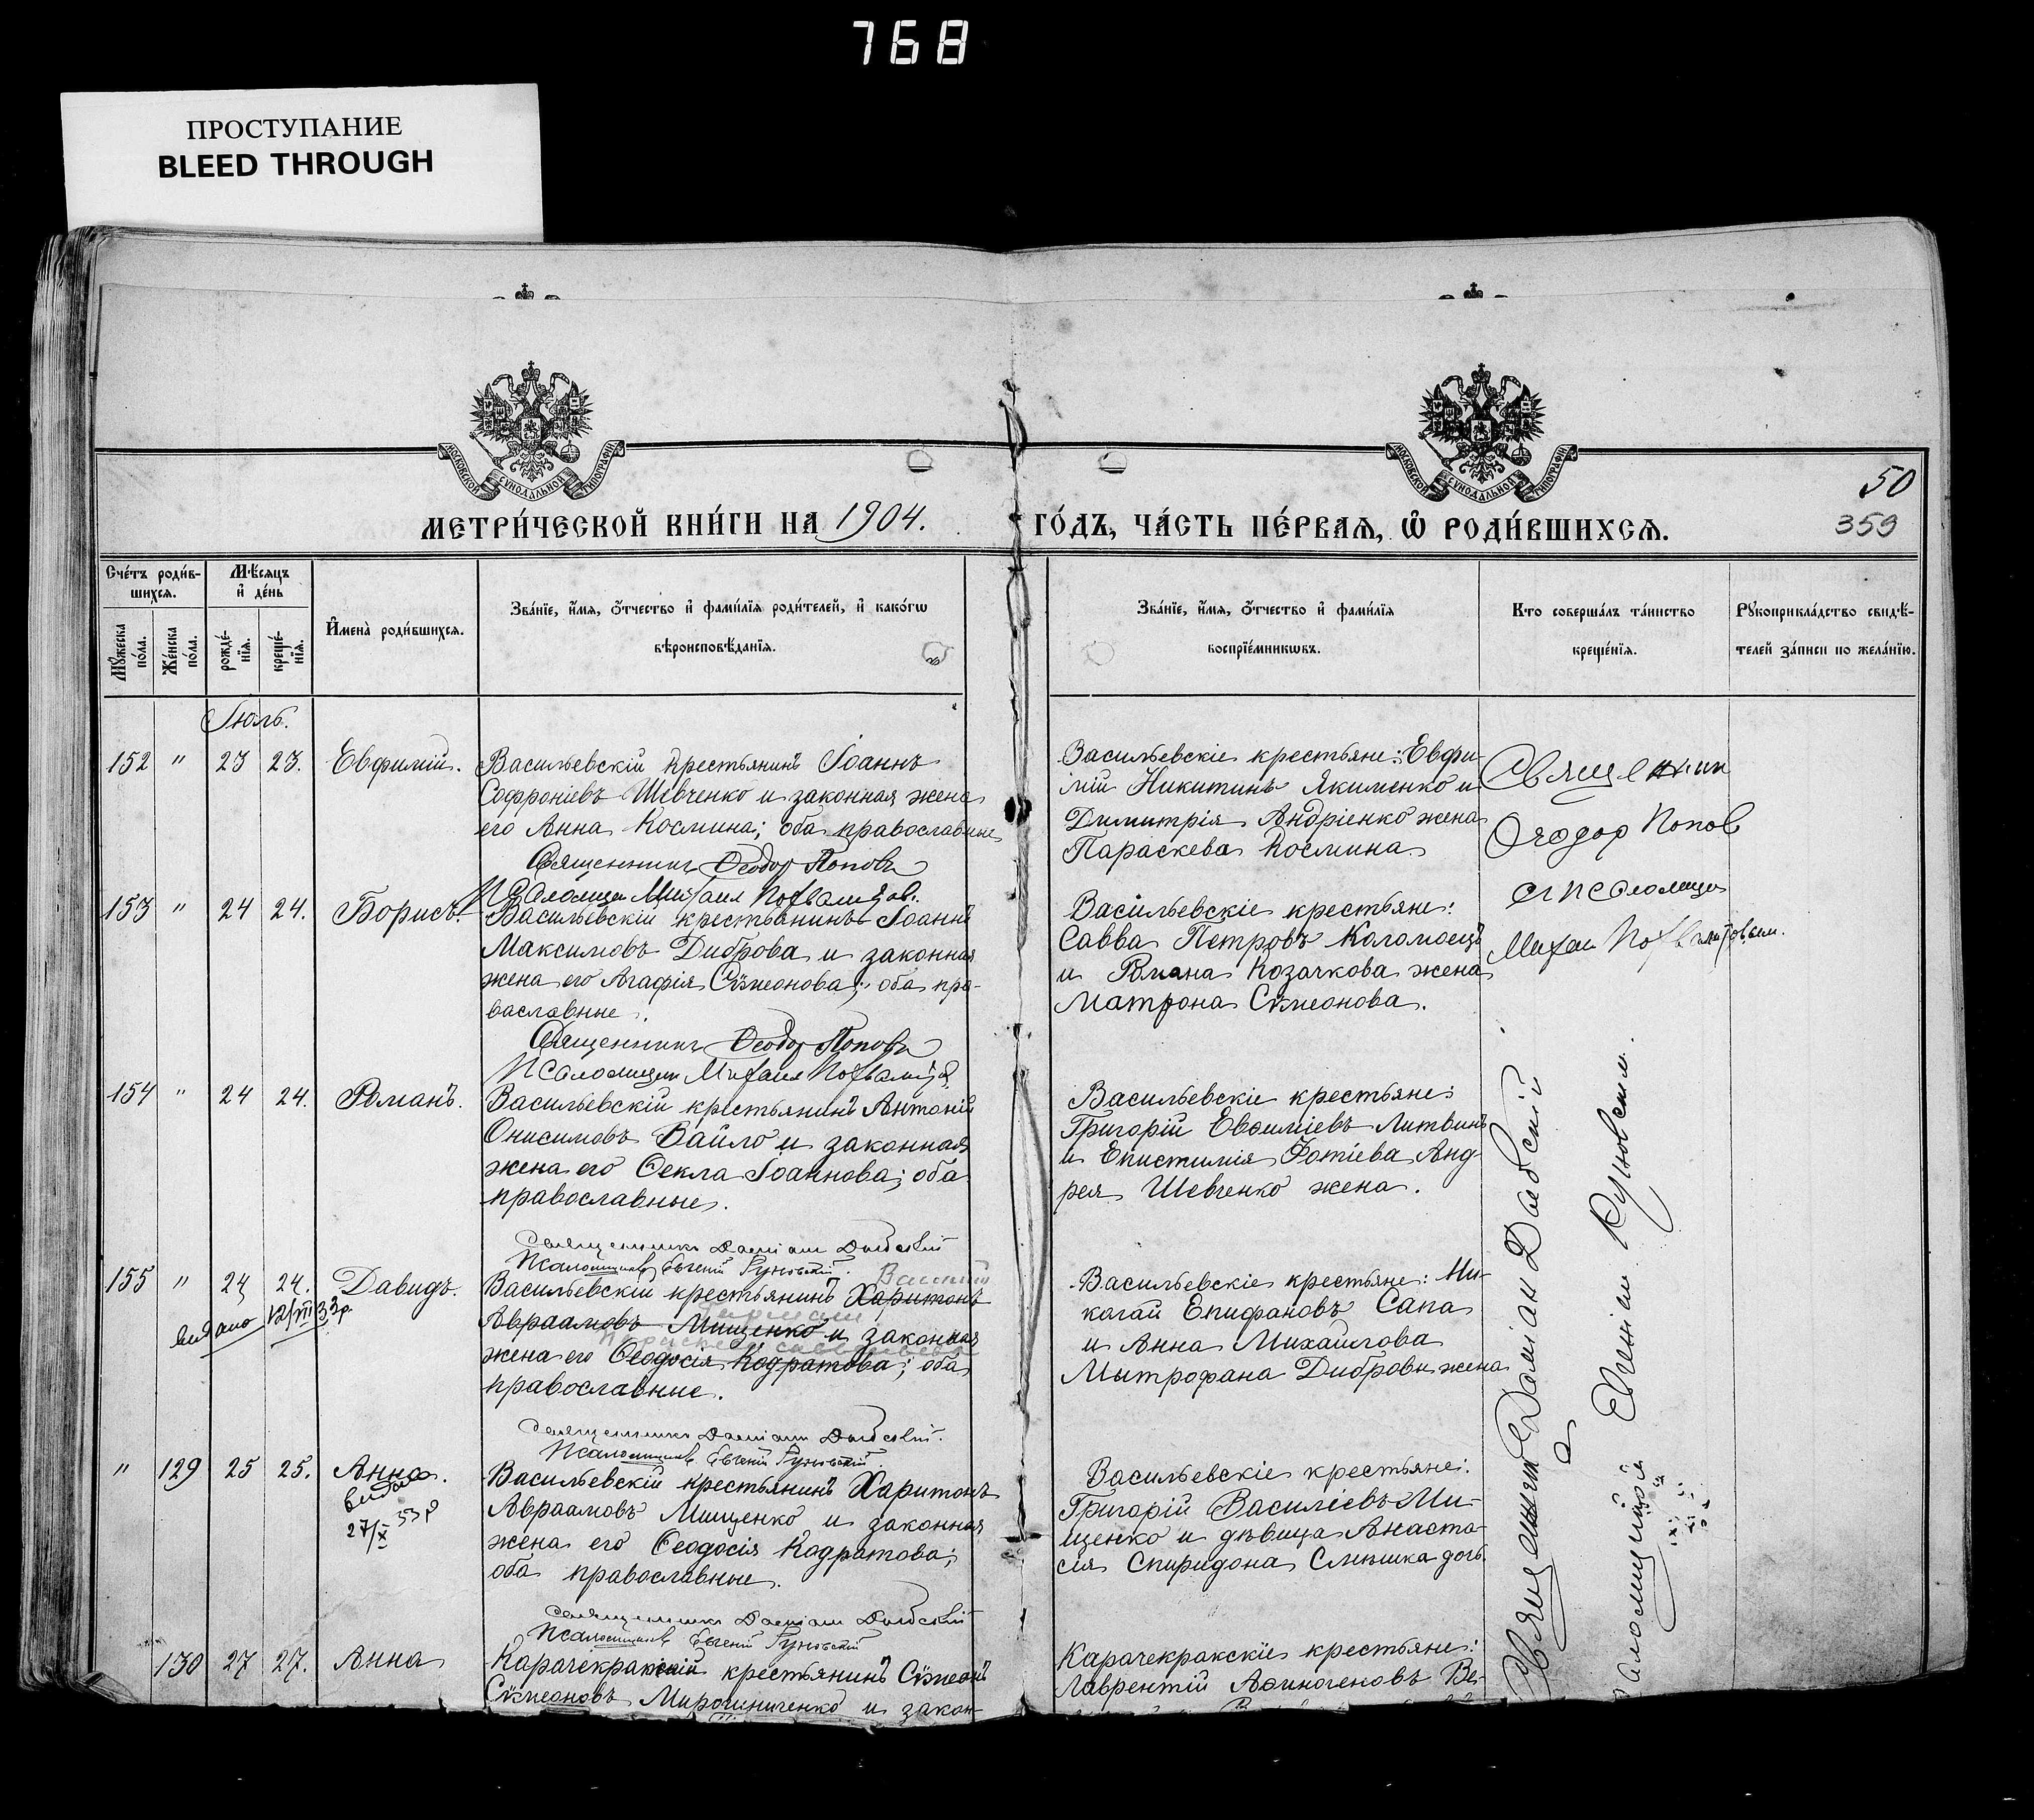 768
ПРОСТУПАНИЕ
BLEED THROUGH
МОСКОВСКОЙ СѴНОДАЛЬНОЙ ТИПОГРАФІИ
МОСКОВСКОЙ СѴНОДАЛЬНОЙ ТИПОГРАФІИ
50
359
МЕТРИ́ЧЕСКОЙ КНИ́ГИ НА 1904. ГО́ДЪ, ЧА́СТЬ ПЕ́РВАѦ, Ѡ҆ РОДИ́ВШИХСѦ.
Сче́тъ роди́в-
шихсѧ.
Мꙋ́жеска
по́ла.
Же́нска
по́ла.
Мѣ́сѧцъ
и҆ де́нь
рожде́-
нїѧ.
креще́-
нїѧ.
И҆мена̀ роди́вшихсѧ.
Зва́нїе, и҆́мѧ, ѻ҆́тчество и҆ фами́лїѧ роди́телей, и҆ како́гѡ
вѣроисповѣ́данїѧ.
Зва́нїе, и҆́мѧ, ѻ҆́тчество и҆ фами́лїѧ
воспрїе́мникѡвъ.
Кто̀ соверша́лъ та́инство
креще́нїѧ.
Рꙋкоприкла́дство свидѣ́-
телей за́писи по жела́нїю.
Іюль.
152 " 23 23. Евфимій.
Васильевскій крестьянинъ Іоаннъ
Софроніевъ Шевченко и законная жена
его Анна Космина; оба православные
Священникъ Ѳеодоръ Поповъ
Псаломщик Михаил
Васильевскіе крестьяне: Евфи-
мій Никитинъ Якименко и
Димитрія Андріенко жена
Параскева Космина.
Священник
Ѳеодор Попов
с псаломщ
Михаи
153 " 24 24. Борисъ.
Васильевскій крестьянинъ Іоаннъ
Максимовъ Диброва и законная
жена его Агафія Сѵмеонова; оба пра-
вославные.
Священникъ Ѳеодоръ Поповъ
Псаломщик Михаил
Васильевскіе крестьяне:
Савва Петровъ Коломоецъ
и Романа Козачкова жена
Матрона Сѵмеонова.
154 " 24 24. Романъ.
Васильевскій крестьянинъ Антоній
Онисимовъ Вайло и законная
жена его Ѳекла Іоаннова; оба
православные.
Священникъ Даміанъ
Псаломщикъ Евгеній
Васильевскіе крестьяне:
Григорій Евѳиміевъ Литвинъ
и Епистимія Фотіева Анд-
рея Шевченко жена.
155 " 24 24. Давидъ.
видано 12/VII 33р.
Васильевскій крестьянинъ Харитонъ
Авраамовъ Мищенко и законная
жена его Ѳеодосія Кодратова; оба
православные.
Священникъ Даміанъ
Псаломщикъ Евгеній
Васильевскіе крестьяне: Ни-
колай Епифановъ Сапа
и Анна Михайлова
Мытрофана Дибровы жена
" 129 25 25. Анна.
видано
27/X 33р
Васильевскій крестьянинъ Харитонъ
Авраамовъ Мищенко и законная
жена его Ѳеодосія Кодратова;
оба православные.
Священникъ Даміанъ
Псаломщикъ Евгеній
Васильевскіе крестьяне:
Григорій Василіевъ Ми-
щенко и дѣвица Анаста-
сія Спиридона дочь.
Священникъ Даміан
Псаломщикъ Евгеній
130 27 27. Анна
Карачекракскій крестьянинъ Сѵмеонъ
Сѵмеоновъ Мирошниченко и закон-
Карачекракскіе крестьяне:
Лаврентій Аѳиногеновъ Ве-